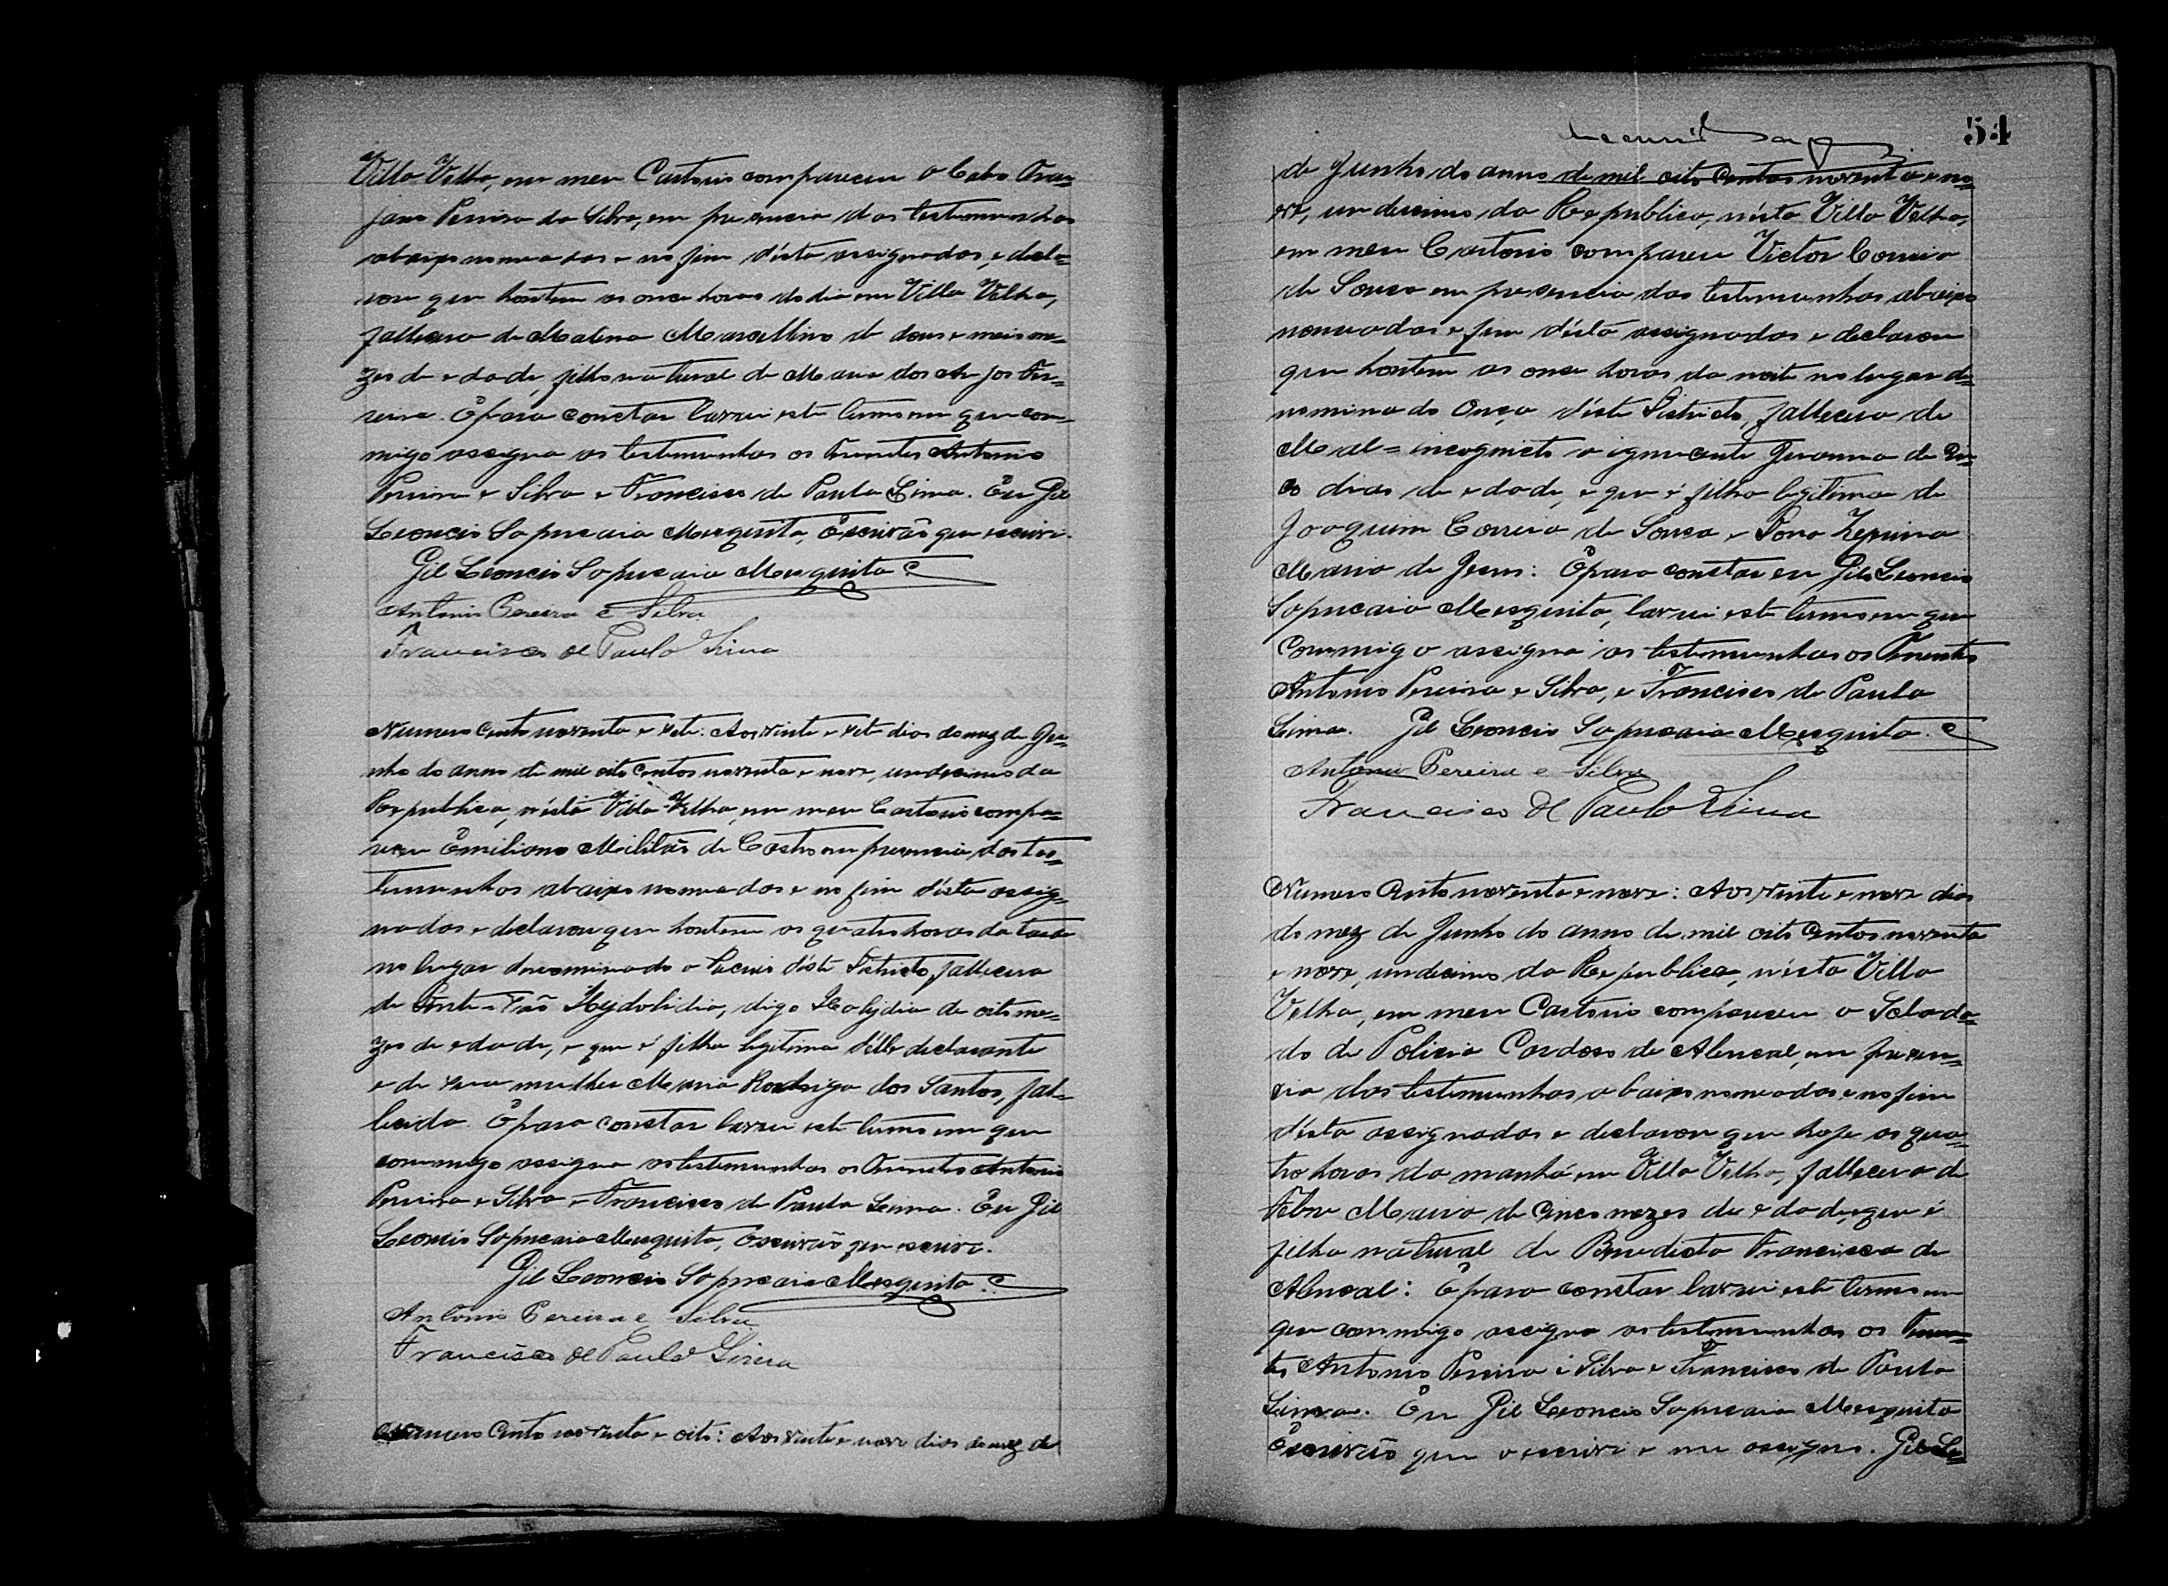 Villa Velha, em meu Cartorio compareceu o Cabo Tra=
jano Pereira da Silva, em presencia das testemunhas
abaixo nomeadas e no fim désta assignadas, e decla=
rou que hontem as onse horas do dia em Villa Velha,
fallecera de Malena Marcellino de dous e meis me=
zes de edade, filho natural de Maria dos Anjos Fer=
reira. E para constar lavrei este termo em que com=
migo assigna as testemunhas os Tenentes Antonio
Pereira e Silva e Francisco de Paula Lima. Eu Gil
Leoncio Sapucaia Mesquita, Escrivão que escrivi.
Gil Leoncio Sapucaia Mesquita
Antonio Pereira e Silva
Francisco de Paula Lima
Numero Cento noventa e sete: Aos vinte e sete dias do mez de Ju=
nho do anno de mil oito Centos noventa e nove, undecimo da
Republica, nésta Villa Velha, em meu Cartorio compa=
receu Emiliano Militão de Castro em presencia das tes=
temunhas abaixo nomeadas e no fim désta assig=
nadas e declarou que hontem as quatro horas da tarde
no lugar denominado o déste Districto, fallecera
de Hydolidia, digo de oito me=
zes de edade, e que é filha legitima délle declarante
e de sua mulher Maria Rodriga dos Santos, fal=
lecida. E para constar lavrei este termo em que
commigo assigna as testemunhas os Tenentes Antonio
Pereira e Silva e Francisco de Paula Lima. Eu Gil
Leoncio Sapucaia Mesquita, Escrivão que escrivi.
Gil Leoncio Sapucaia Mesquita
Antonio Pereira e Silva
Francisco de Paula Lima
Numero Cento noventa e oito: Aos vinte e nove dias do mez de
54
de Junho do anno de mil oito Centos noventa e no=
ve, undecimo da Republica, nésta Villa Velha,
em meu Cartorio compareu Victor Correia
de Sousa em presencia das testemunhas abaixo
nomeadas e fim désta assignadas e declarou
que hontem as onse horas da noite no lugar de=
nominado Onça déste Districto, fallecera de
Mal=incognicto o ignocente Juvanna de
dias de edade, e que é filha legitima de
Joaquim Correia de Sousa e Dona Zeprina
Maria de Jesus: E para constar eu Gil Leoncio
Sapucaia Mesquita, lavrei este termo em que
Commigo assigna as testemunhas os Tenentes
Antonio Pereira e Silva, e Francisco de Paula
Lima. Gil Leoncio Sapucaia Mesquita.
Antonio Pereira e Silva
Francisco de Paula Lima
Numero Cento noventa e nove: Aos vinte e nove dias
do mez de Junho do anno de mil oito Centos noventa
e nove, undecimo da Republica, nésta Villa
Velha, em meu Cartorio compareceu o Soldado
do de Policia Cardoso de Alencal, em presen=
cia das testemunhas abaixo nomeadas e no fim
désta assignadas e declarou que hoje as qua=
tro horas da manhã em Villa Velha, falleceu de
Febre Maria de Cinco mezes de edade, que é
filha natural de Benedicta Francisca de
Alencal: E para constar lavrei este termo em
que commigo assigna as testemunhas os Tenen=
tes Antonio Pereira e Silva e Francisco de Paula
Lima. Eu Gil Leoncio Sapucaia Mesquita
Escrivão que o escrivi e me assigno. Gil Le=